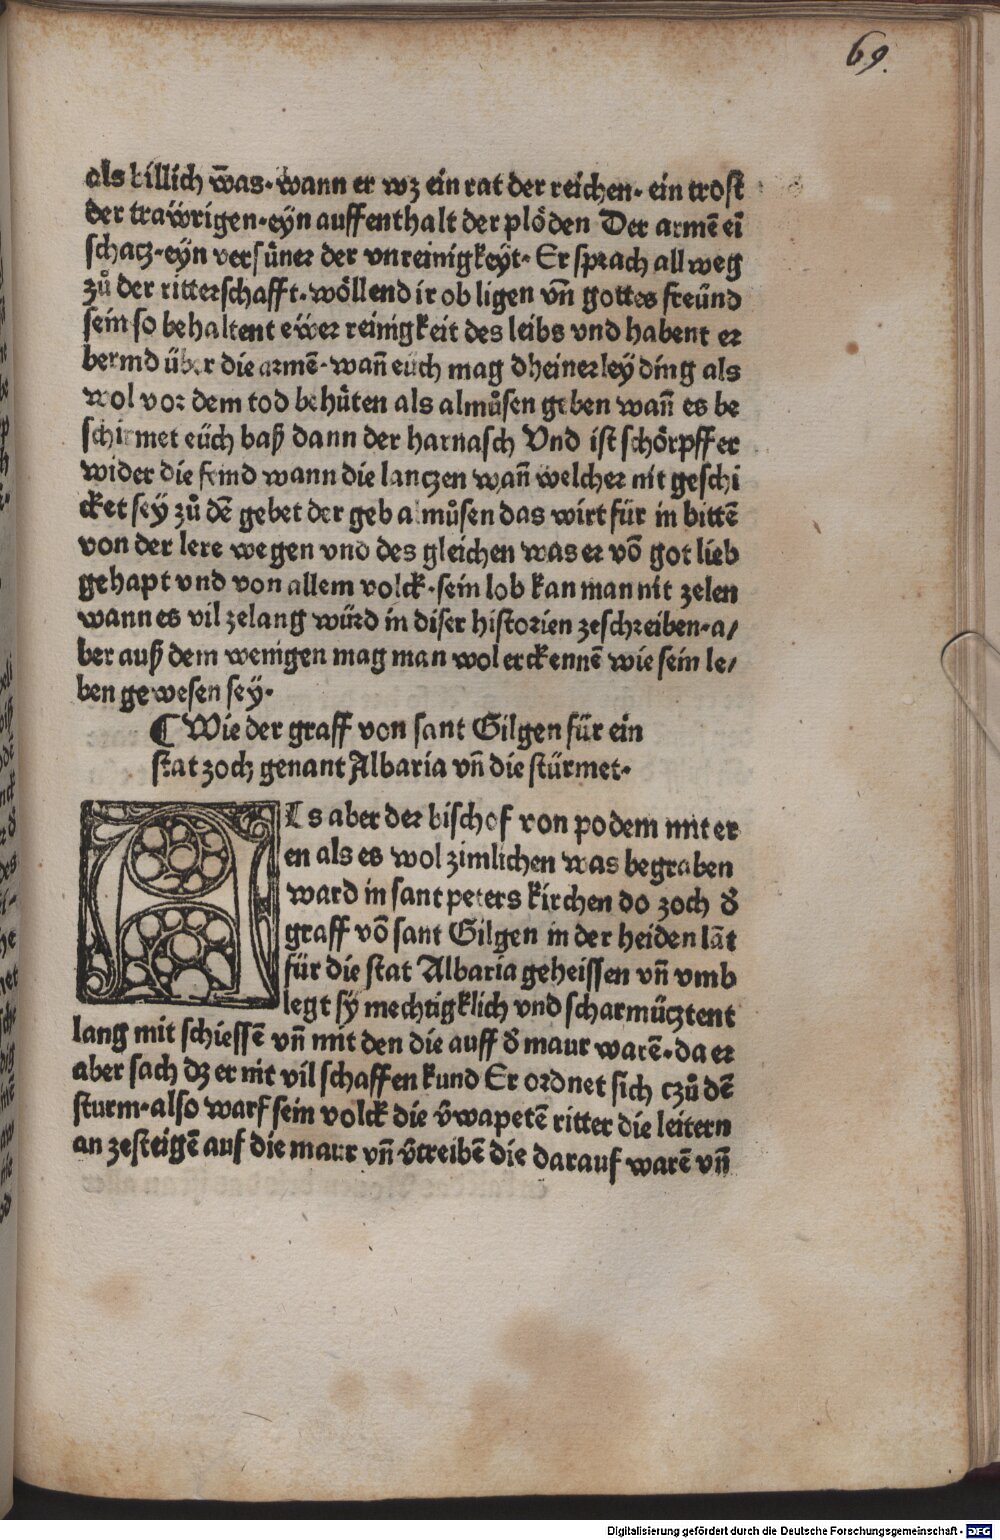 69.
als billich w̄as·wann er wz ein rat der reichen·ein trost
der traẅrigen·eÿn auffenthalt der plöden Der armē eī
schacz·eÿn versüner der vnreinigkeÿt·Er sprach allweg
zů der ritterschafft·wöllend ir ob ligen vn̄ gottes freünd
sein so behaltent eẅer reinigkeit des leibs vnd habent er
bermd über die armē·wan̄ eüch mag dheinerleÿ ding als
wol vor dem tod behüten als almůsen geben wan̄ es be
schirmet eüch baß dann der harnasch Vnd ist schörpffer
wider die feind wann die lanczen wan̄ welcher nit geschi
cket seÿ zů dē gebet der geb almůsen das wirt für in bittē
von der lere wegen vnd des gleichen was er vō got lieb
gehapt vnd von allem volck·sein lob kan man nit zelen
wann es vil zelang würd in diser historien zeschreiben·a/
ber auß dem wenigen mag man wol erckennē wie sein le/
ben gewesen seÿ·
¶ Wie der graff von sant Gilgen für ein
stat zoch genant Albaria vn̄ die stürmet·
Als aber der bischof von podem mit er
en als es wol zimlichen was begraben
ward in sant peters kirchen do zoch d̕
graff vō sant Gilgen in der heiden lāt
für die stat Albaria geheissen vn̄ vmb
legt sÿ mechtigklich vnd scharmücztent
lang mit schiessē vn̄ mit den die auff d̕ maur warē·da er
aber sach dz er nit vil schaffen kund Er ordnet sich czů dē
sturm·also warf sein volck die v̕wapetē ritter die leitern
an zesteigē auf die maur vn̄ v̕treibē die darauf warē vn̄
Digitalisierung gefördert durch die Deutsche Forschungsgemeinschaft - DFG